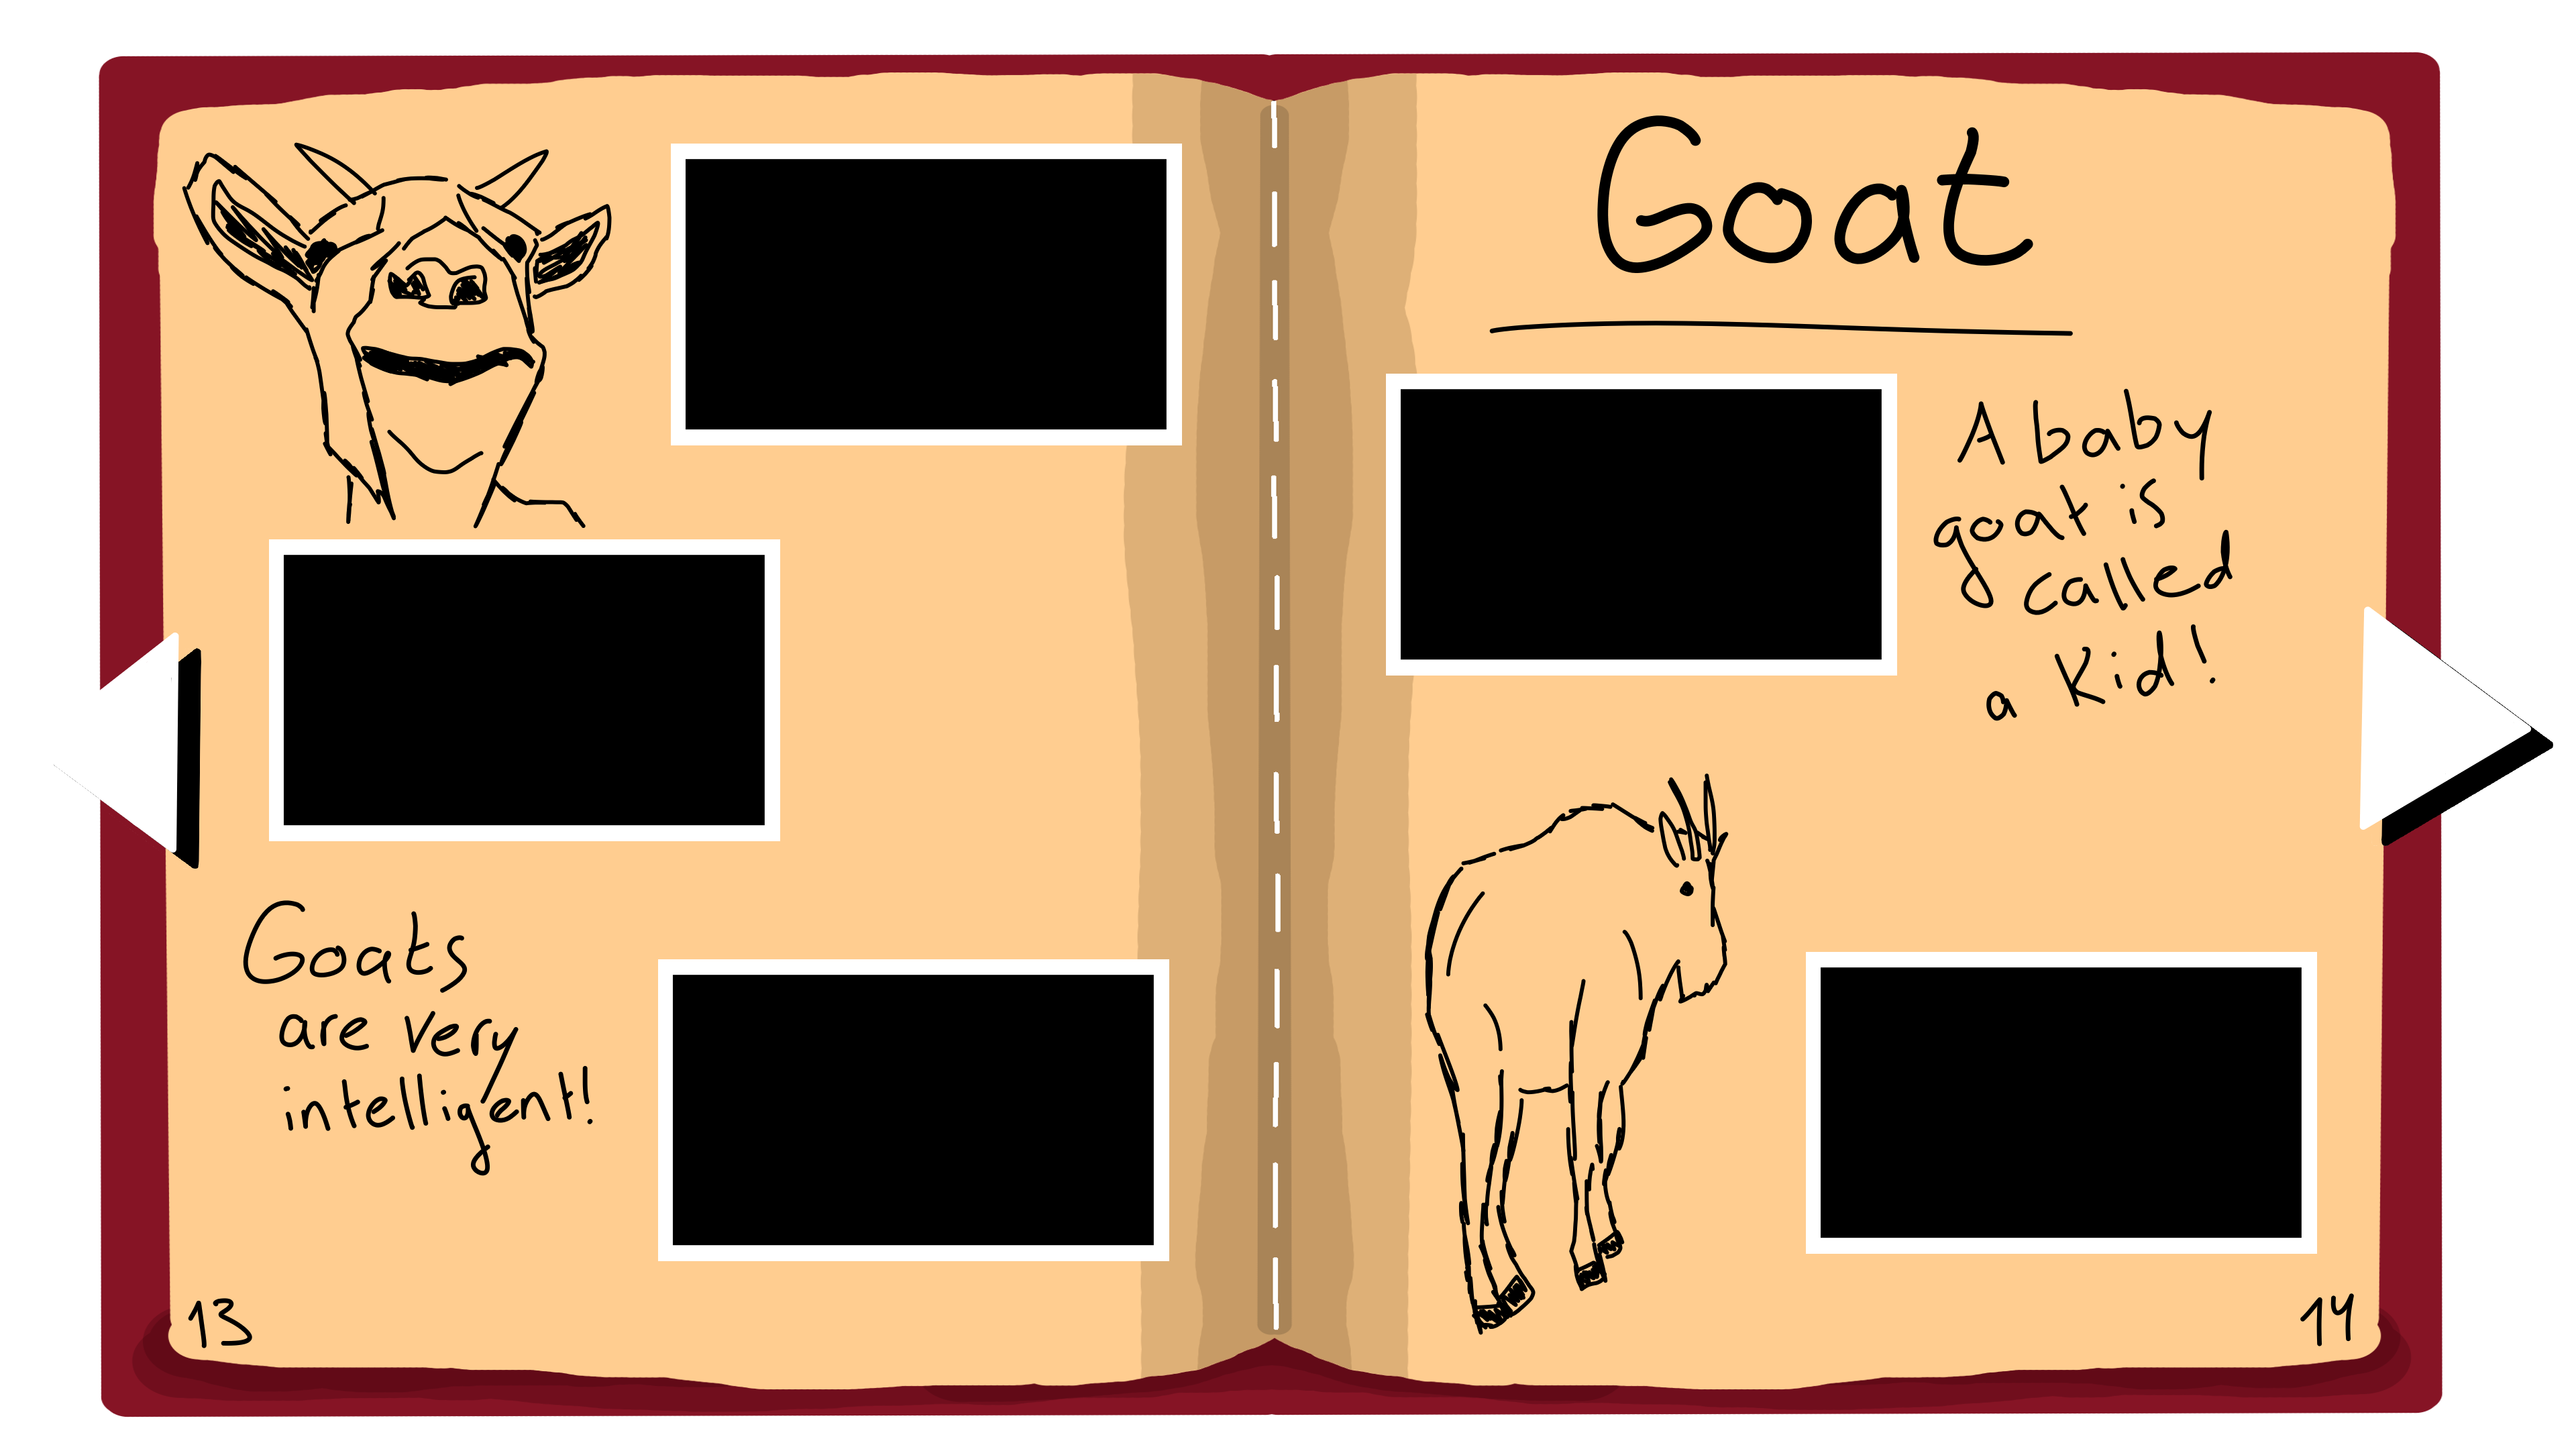 Goats
are very
intelligent!
13
Goat
A baby
goat is
called
a Kid!
14